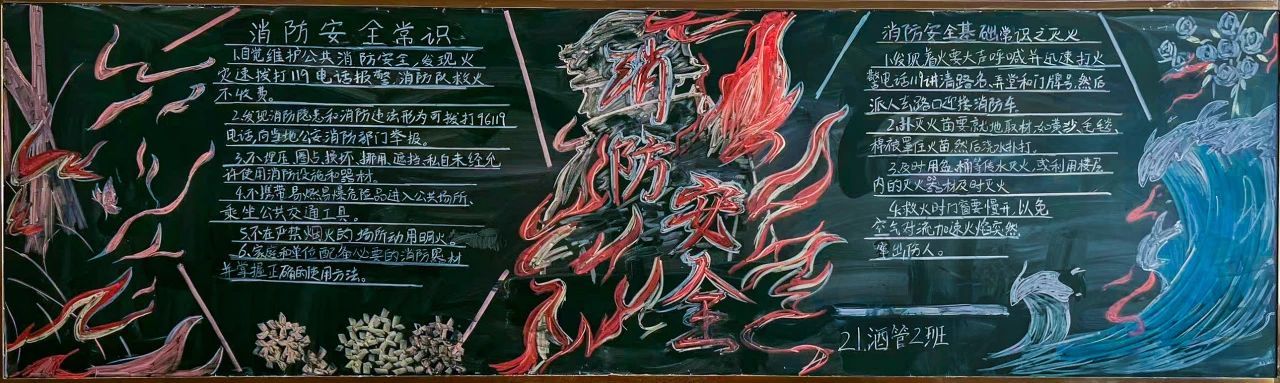 消防安全常识
1.自觉维护公共消防安全,发现火
灾速拨打119电话报警,消防队救火
不收费。
2.发现消防隐患和消防违法行为可拨打96119
电话,向当地公安消防部门举报。
3.不埋压、圈占、损坏、挪用、遮挡、私自未经允
许使用消防设施和器材
4.不携带易燃易爆危险品进入公共场所、
乘坐公共交通工具。
5.不在严禁烟火的场所动用明火。
6.家庭和单位配备必要的消防器材
并掌握正确的使用方法。
消防安全
消防安全基础常识之灭火
1.发现着火要大声呼喊并迅速打火
警电话119讲清路名、弄堂和门牌号,然后
派人去路口迎接消防车
2.扑灭火苗要就地取材,如黄沙、毛毯、
棉被罩住火苗,然后浇水扑打,
3.及时用盆、桶等传水灭火,或利用楼层
内的灭火器材及时灭火
4.救火时门窗要慢开,以免
空气对流加速火焰突然
窜出伤人。
21.酒管2班